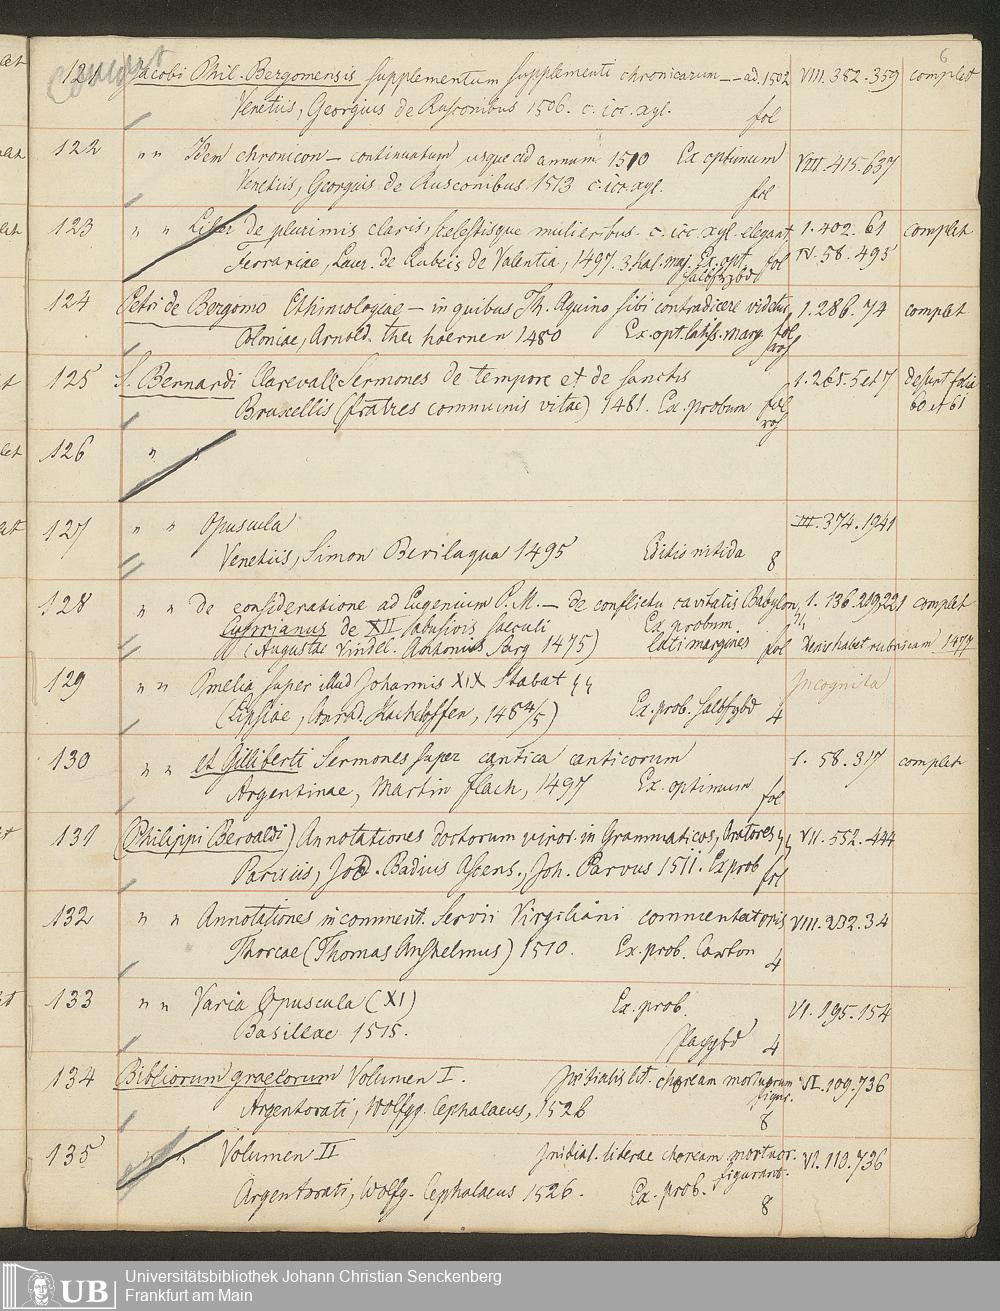 6
121 Jacobi Phil. Bergomensis supplementum supplementi chronicarum — ad. 1502 VIII. 382. 359 complet
Venetiis, Georgius de Rusconibus 1506. c. icc. xyl. fol
122 " " Idem chronicon — continuatum usque ad annum 1510 Ex optimum VIII. 415. 637
Venetiis, Georgius de Rusconibus 1513 c. icc. xyl. fol
123 " " Liber de plurimis claris, scelestisque mulieribus. c. icc. xyl. elegant. 1. 402. 61 complet
Ferrariae, Laur. de Rubeis de Valentia, 1497. 3 Kal. maj. Ex. opt. fol IV. 58. 495
halbfrzbd
124 Petri de Bergomo Ethimologiae — in quibus Th. Aquino sibi contradicere videtur, 1. 286. 74 complet
Coloniae, Arnold. ther hoernen 1480 Ex. opt. latiss. marg. fol
125 S. Bernardi Clarevall. Sermones de tempore et de sanctis 1. 265. 5 et 7 desunt folia
Bruxellis (fratres communis vitae) 1481. Ex. probum fol 60 et 61
126 " "
127 " " Opuscula III. 374. 1941
Venetiis, Simon Bevilaqua 1495 Editio nitida 8
128 " " de consideratione ad Eugenium P. M. — de conflictu cavitatis Babylon, 1. 136. 219, 221 complet
Cyprianus de XII abusivis saeculi Ex probum
(Augustae Vindel. Antonius Sorg 1475) lati margines fol Denis habet rubricam 1477
129 " " Omelia super illud Johannis XIX Stabat Incognita
(Lipsiae, Conrad. Kacheloffen, 1484/5) Ex. prob. halbfrzbd 4
130 " " et Gilliberti Sermones super cantica canticorum 1. 58. 317 complet
Argentinae, Martin Flach, 1497 Ex. optimum fol
131 (Philippi Beroaldi) Annotationes doctorum viror. in Grammaticos, Oratores VII. 552. 444
Parisiis, Jod. Badius Ascens., Joh. Parvus 1511. Ex prob fol
132 " " Annotationes in comment. Servii Virgiliani commentatoris VIII. 232. 34
Thorcae (Thomas Anshelmus) 1510. Ex. prob. Carton 4
133 " " Varia Opuscula (XI) Ex. prob. VI. 195. 154
Basileae 1515. Pappbd 4
134 Bibliorum graecorum Volumen I. Initialis lit. choream mortuorum VI. 109. 736
Argentorati, Wolfg. Cephalaeus, 1526 figur. 8
135 " " Volumen II Initial. literae choream mortuor. VI. 110. 736
figurant.
Argentorati, Wolfg. Cephalaeus 1526. Ex. prob. 8
UB
Universitätsbibliothek Johann Christian Senckenberg
Frankfurt am Main